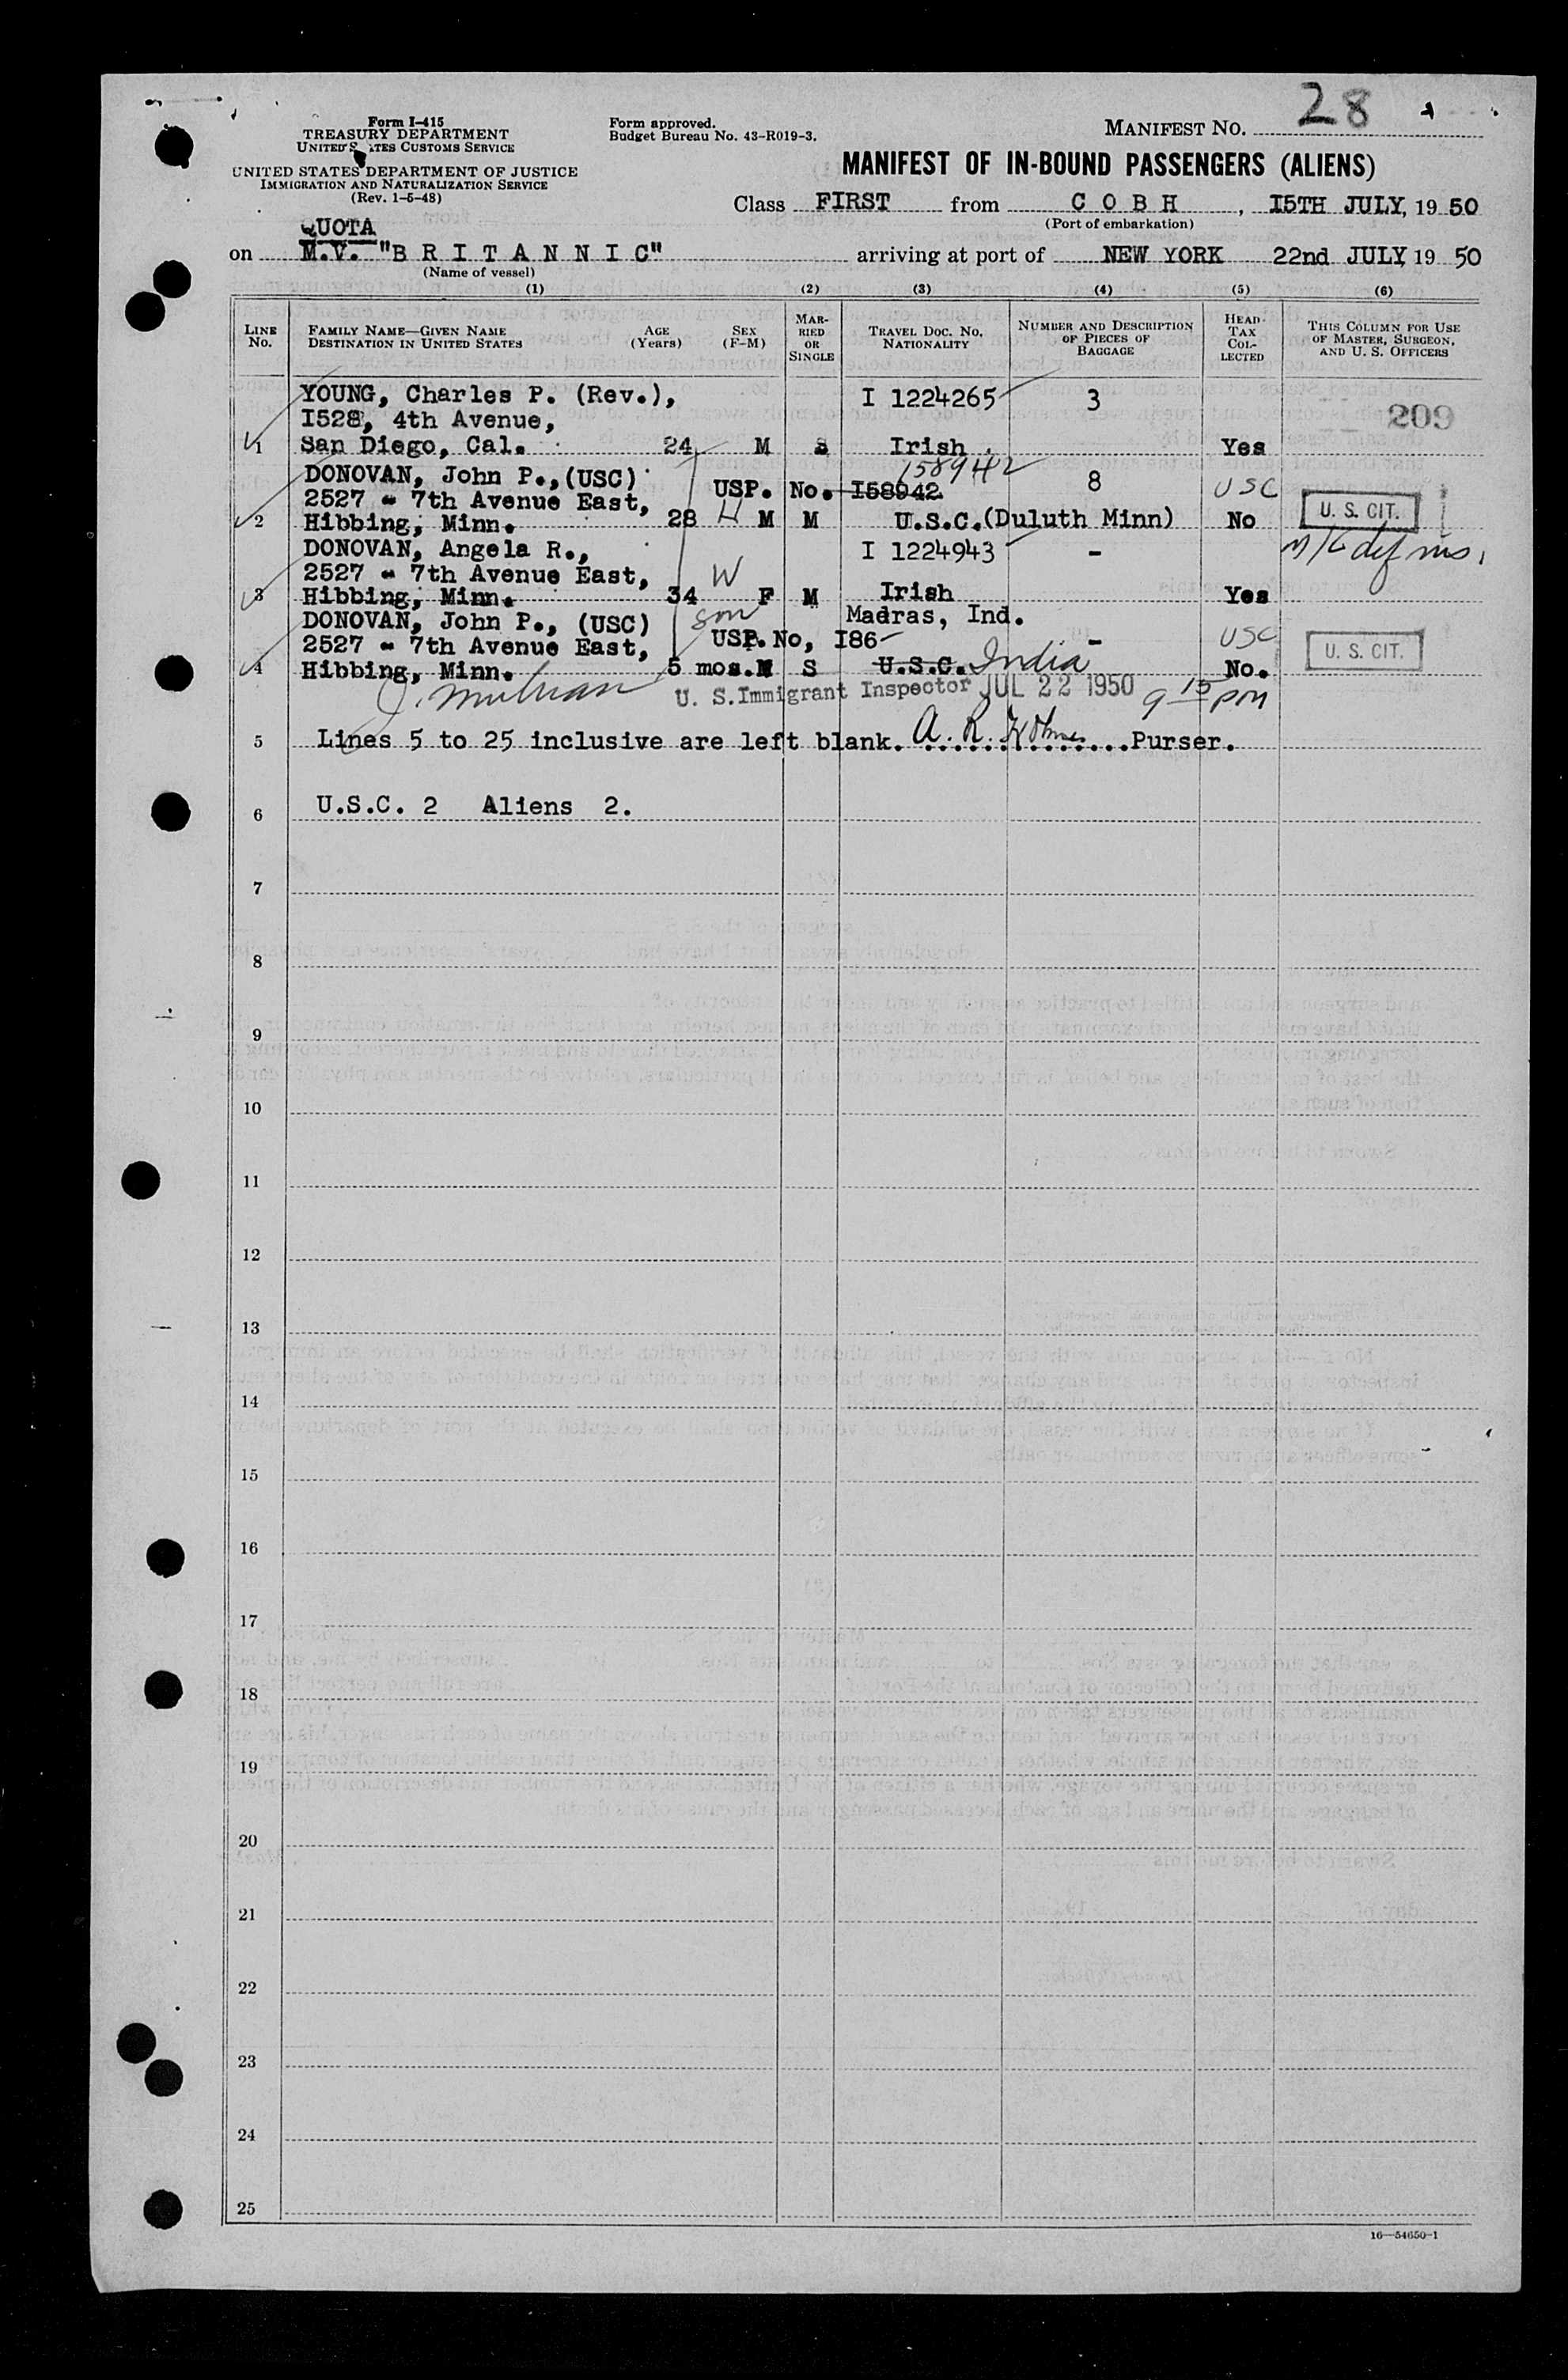 28
Form I-415
TREASURY DEPARTMENT
UNITED STATES CUSTOMS SERVICE
UNITED STATES DEPARTMENT OF JUSTICE
IMMIGRATION AND NATURALIZATION SERVICE
(Rev. 1-5-48)
Form approved.
Budget Bureau No. 43-R019-3.
MANIFEST NO.
MANIFEST OF IN-BOUND PASSENGERS (ALIENS)
Class FIRST from C O B H , I5TH JULY, 19 50
(Port of embarkation)
QUOTA
on M.V. "B R I T A N N I C" arriving at port of NEW YORK 22nd JULY, 19 50
(Name of vessel)
(1) (2) (3) (4) (5) (6)
LINE No. FAMILY NAME—GIVEN NAME DESTINATION IN UNITED STATES AGE (Years) SEX (F-M) MARRIED OR SINGLE TRAVEL DOC. NO. NATIONALITY NUMBER AND DESCRIPTION OF PIECES OF BAGGAGE HEAD TAX COLLECTED THIS COLUMN FOR USE OF MASTER, SURGEON, AND U. S. OFFICERS
YOUNG, Charles P. (Rev.), I 1224265 3
I528, 4th Avenue, 209
1 San Diego, Cal. 24 M S Irish. Yes
158942
DONOVAN, John P.,(USC)
2527 - 7th Avenue East, USP. No. I58942 8 USC U. S. CIT.
2 Hibbing, Minn. 28 H M M U.S.C.(Duluth Minn) No
DONOVAN, Angela R., I 1224943 -
2527 - 7th Avenue East, W
3 Hibbing, Minn. 34 F M Irish Yes
DONOVAN, John P., (USC) son Madras, Ind.
2527 - 7th Avenue East, USP. No, I86 - USC U. S. CIT.
4 Hibbing, Minn. 5 mos. M S U.S.C. India No.
U. S. Immigrant Inspector JUL 22 1950 9 15 PM
5 Lines 5 to 25 inclusive are left blank. A. R. Purser.
6 U.S.C. 2 Aliens 2.
7
8
9
10
11
12
13
14
15
16
17
18
19
20
21
22
23
24
25
16—54650-1